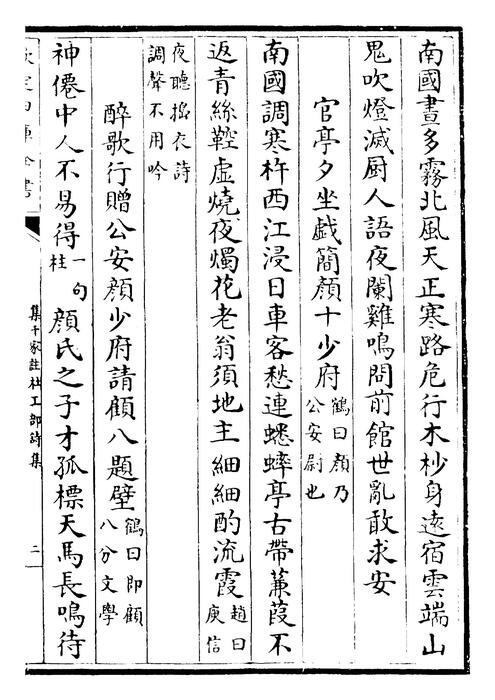 南國晝多霧北風天正寒路危行木杪身逺宿雲端山
鬼吹燈滅厨人語夜闌雞鳴問前館世亂敢求安
官亭夕坐戯簡顔十少府鶴曰顔乃公安尉也
南國調寒杵西江浸日車客愁連蟋蟀亭古帶蒹葭不
返青絲鞚虚燒夜燭花老翁須地主細細酌流霞趙曰庾信
夜聽搗衣詩調聲不用吟
醉歌行贈公安顔少府請顧八題壁鶴曰即顧八分文學
神僊中人不易得一句柱顔氏之子才孤標天馬長鳴待
欽定四庫全書
集千家註杜工部詩集
二